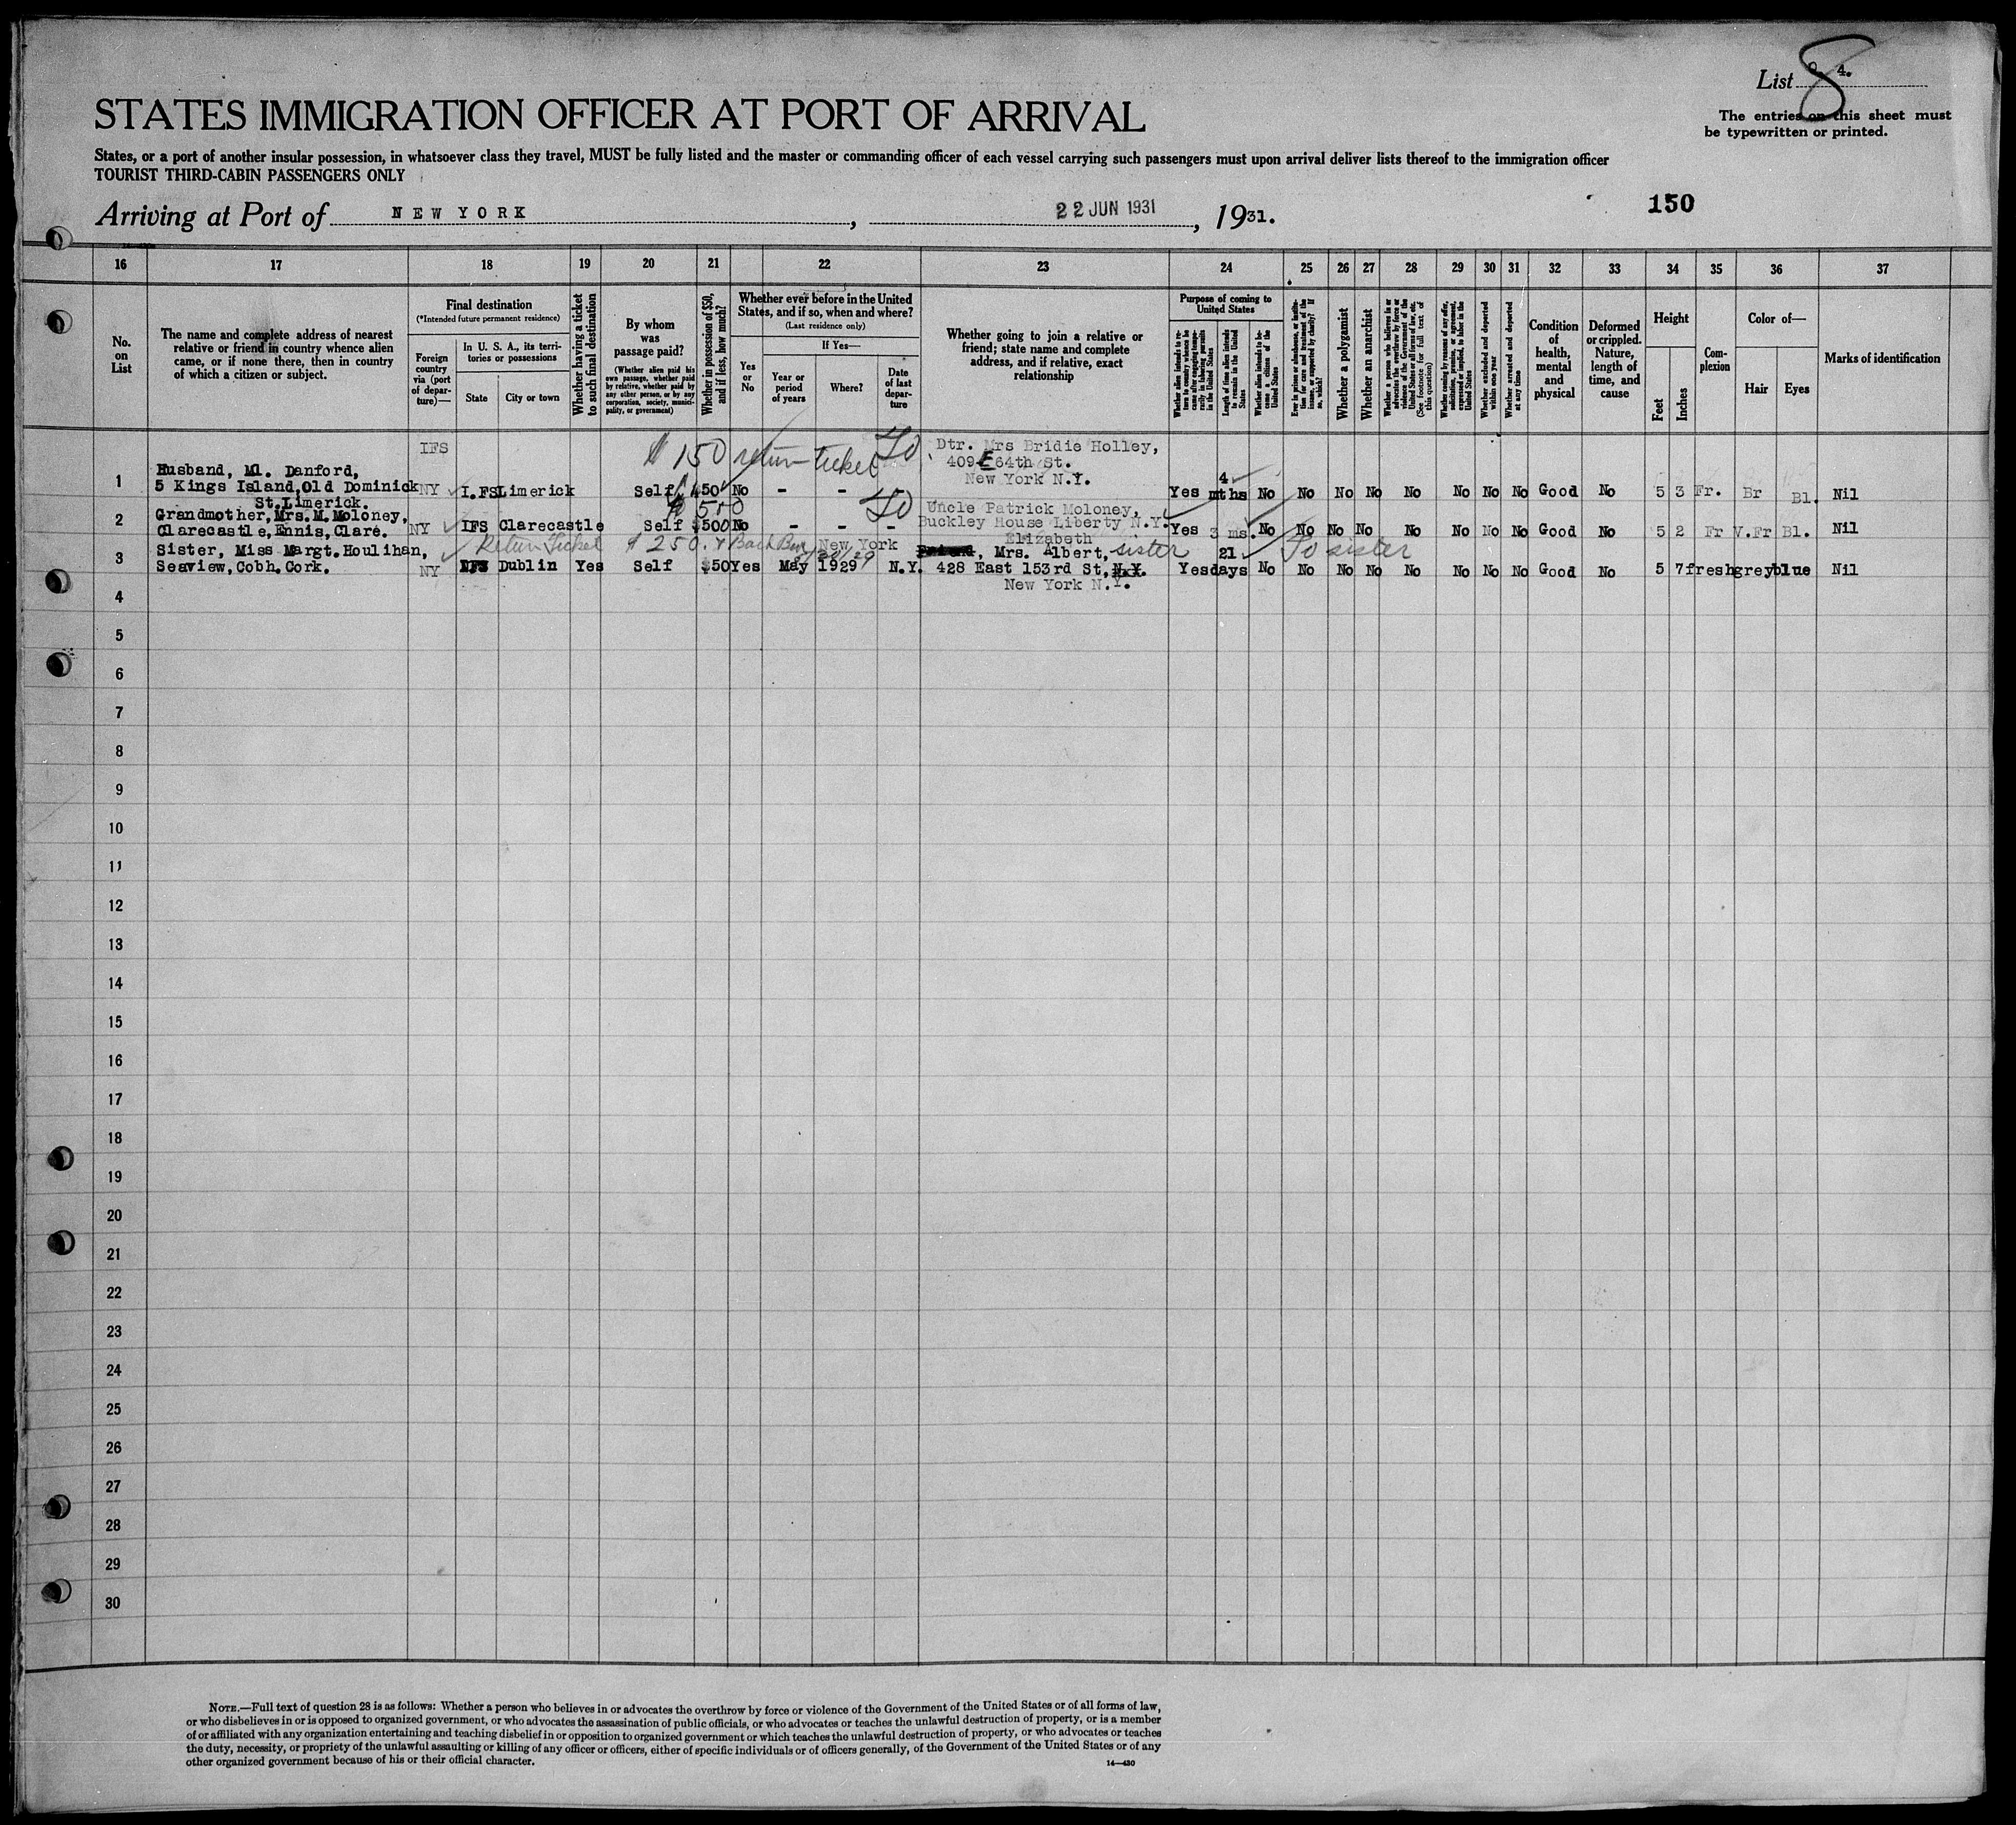 List 8 4.
The entries on this sheet must
be typewritten or printed.
STATES IMMIGRATION OFFICER AT PORT OF ARRIVAL
States, or a port of another insular possession, in whatsoever class they travel, MUST be fully listed and the master or commanding officer of each vessel carrying such passengers must upon arrival deliver lists thereof to the immigration officer
TOURIST THIRD-CABIN PASSENGERS ONLY
Arriving at Port of NEW YORK, 22 JUN 1931, 1931.
150
16 17 18 19 20 21 22 23 24 25 26 27 28 29 30 31 32 33 34 35 36 37
No.
on
List
The name and complete address of nearest
relative or friend in country whence alien
came, or if none there, then in country
of which a citizen or subject.
Final destination
(*Intended future permanent residence)
Foreign
country
via (port
of depar-
ture)—
In U. S. A., its terri-
tories or possessions
State
City or town
Whether having a ticket
to such final destination
By whom
was
passage paid?
(Whether alien paid his
own passage, whether paid
by relative, whether paid by
any other person, or by any
corporation, society, munici-
pality, or government)
Whether in possession of $50,
and if less, how much?
Whether ever before in the United
States, and if so, when and where?
(Last residence only)
Yes
or
No
If Yes—
Year or
period
of years
Where?
Date
of last
depar-
ture
Whether going to join a relative or
friend; state name and complete
address, and if relative, exact
relationship
Purpose of coming to
United States
Whether alien intends to re-
turn to country whence he
came after engaging tempo-
rarily in laboring pursuits
in the United States
Length of time alien intends
to remain in the United
States
Whether alien intends to be-
come a citizen of the
United States
Ever in prison or almshouse, or institu-
tion for care and treatment of the
insane, or supported by charity? If
so, which?
Whether a polygamist
Whether an anarchist
Whether a person who believes in or
advocates the overthrow by force or
violence of the Government of the
United States or all forms of law, etc.
(See footnote for full text of
this question)
Whether coming by reasons of any offer,
solicitation, promise, or agreement,
expressed or implied, to labor in the
United States
Whether excluded and deported
within one year
Whether arrested and deported
at any time
Condition
of
health,
mental
and
physical
Deformed
or crippled.
Nature,
length of
time, and
cause
Height
Feet
Inches
Com-
plexion
Color of—
Hair
Eyes
Marks of identification
IFS
$150 return ticket
Dtr. Mrs Bridie Holley,
409 E 64th St.
New York N.Y.
1
Husband, Ml. Danford,
5 Kings Island, Old Dominick
St. Limerick.
NY I.FS Limerick Self $50 No - - 4 Yes mths No No No No No No No No Good No 5 3 Fr. Br Bl. Nil
$500
Uncle Patrick Moloney,
Buckley House Liberty N.Y.
2
Grandmother, Mrs. M. Moloney,
Clarecastle, Ennis, Clare.
NY IFS Clarecastle Self $500 No - - - Yes 3 ms. No No No No No No No No Good No 5 2 Fr V.Fr Bl. Nil
Return Ticket $250. New York
Elizabeth
, Mrs. Albert, sister
428 East 153rd St, N.Y.
New York N.Y.
To sister
3
Sister, Miss Margt. Houlihan,
Seaview, Cobh. Cork.
NY IFS Dublin Yes Self $50 Yes May 1929 N.Y. Yes 21 days No No No No No No No No Good No 5 7 fresh grey blue Nil
4
5
6
7
8
9
10
11
12
13
14
15
16
17
18
19
20
21
22
23
24
25
26
27
28
29
30
NOTE.—Full text of question 28 is as follows: Whether a person who believes in or advocates the overthrow by force or violence of the Government of the United States or of all forms of law,
or who disbelieves in or is opposed to organized government, or who advocates the assassination of public officials, or who advocates or teaches the unlawful destruction of property, or is a member
of or affiliated with any organization entertaining and teaching disbelief in or opposition to organized government or which teaches the unlawful destruction of property, or who advocates or teaches
the duty, necessity, or propriety of the unlawful assaulting or killing of any officer or officers, either of specific individuals or of officers generally, of the Government of the United States or of any
other organized government because of his or their official character.
14—430